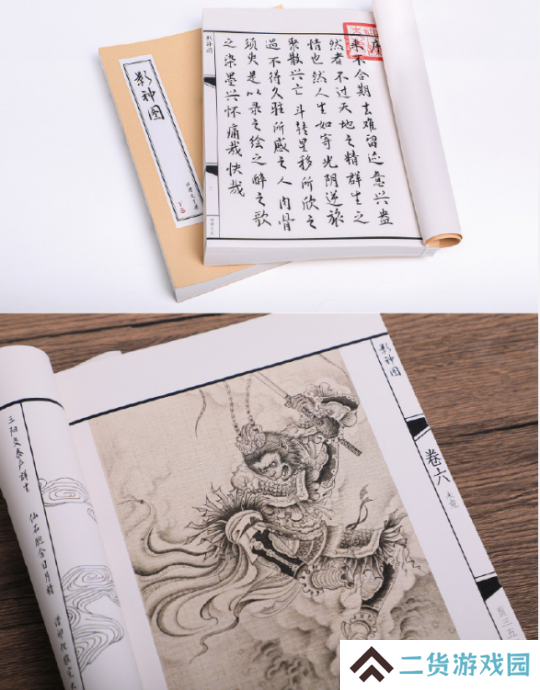 影神图
序
来不合期去难留迹意兴盎
然者不过天地之精群生之
情也然人生如寄光阴逆旅
聚散兴亡斗转星移所欣之
遇不得久驻所感之人肉骨
须臾是以录之绘之醉之歌
之染墨兴怀痛哉快哉
影神图
卷六
三阳交泰产群生
仙石胞含日月精
借卵化猴完大
二货游戏园